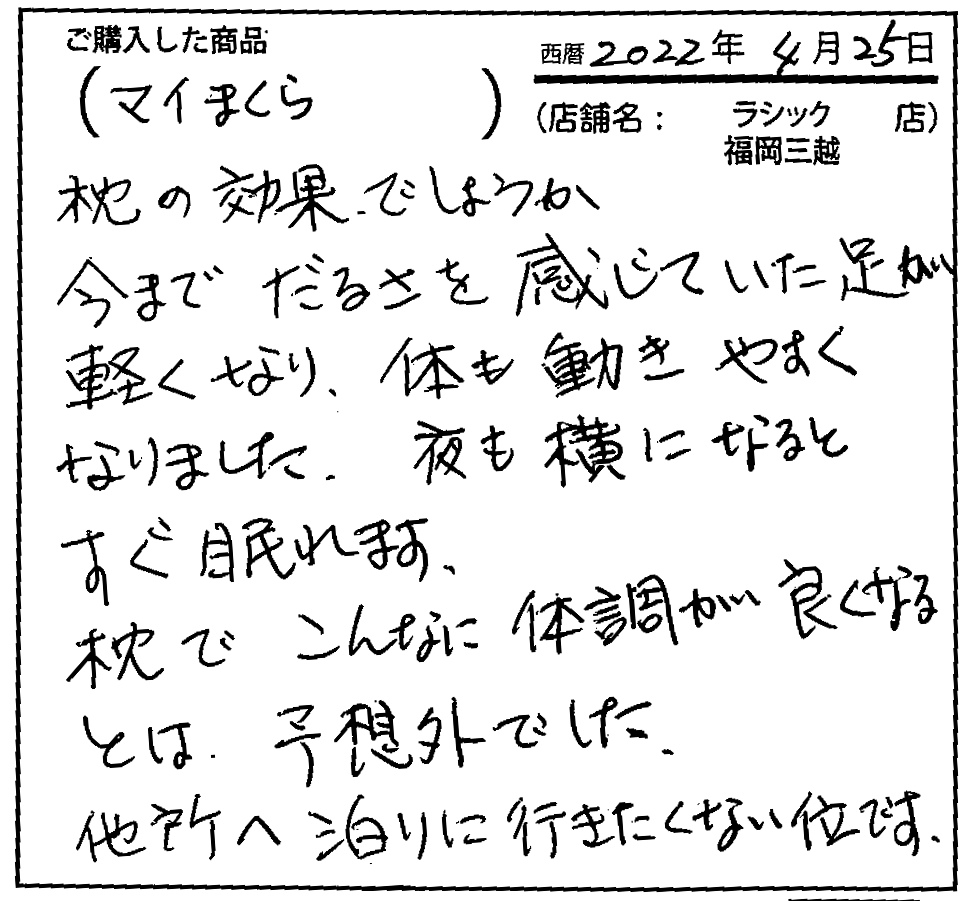 ご購入した商品
(マイまくら)
西暦2022年 4月25日
(店舗名: ラシック福岡三越 店)
枕の効果でしょうか
今まで だるさを 感じていた足が
軽くなり、体も動きやすく
なりました。 夜も横になると
すぐ眠れます。
枕で こんなに 体調が良くなる
とは、予想外でした。
他所へ泊りに行きたくない位です。